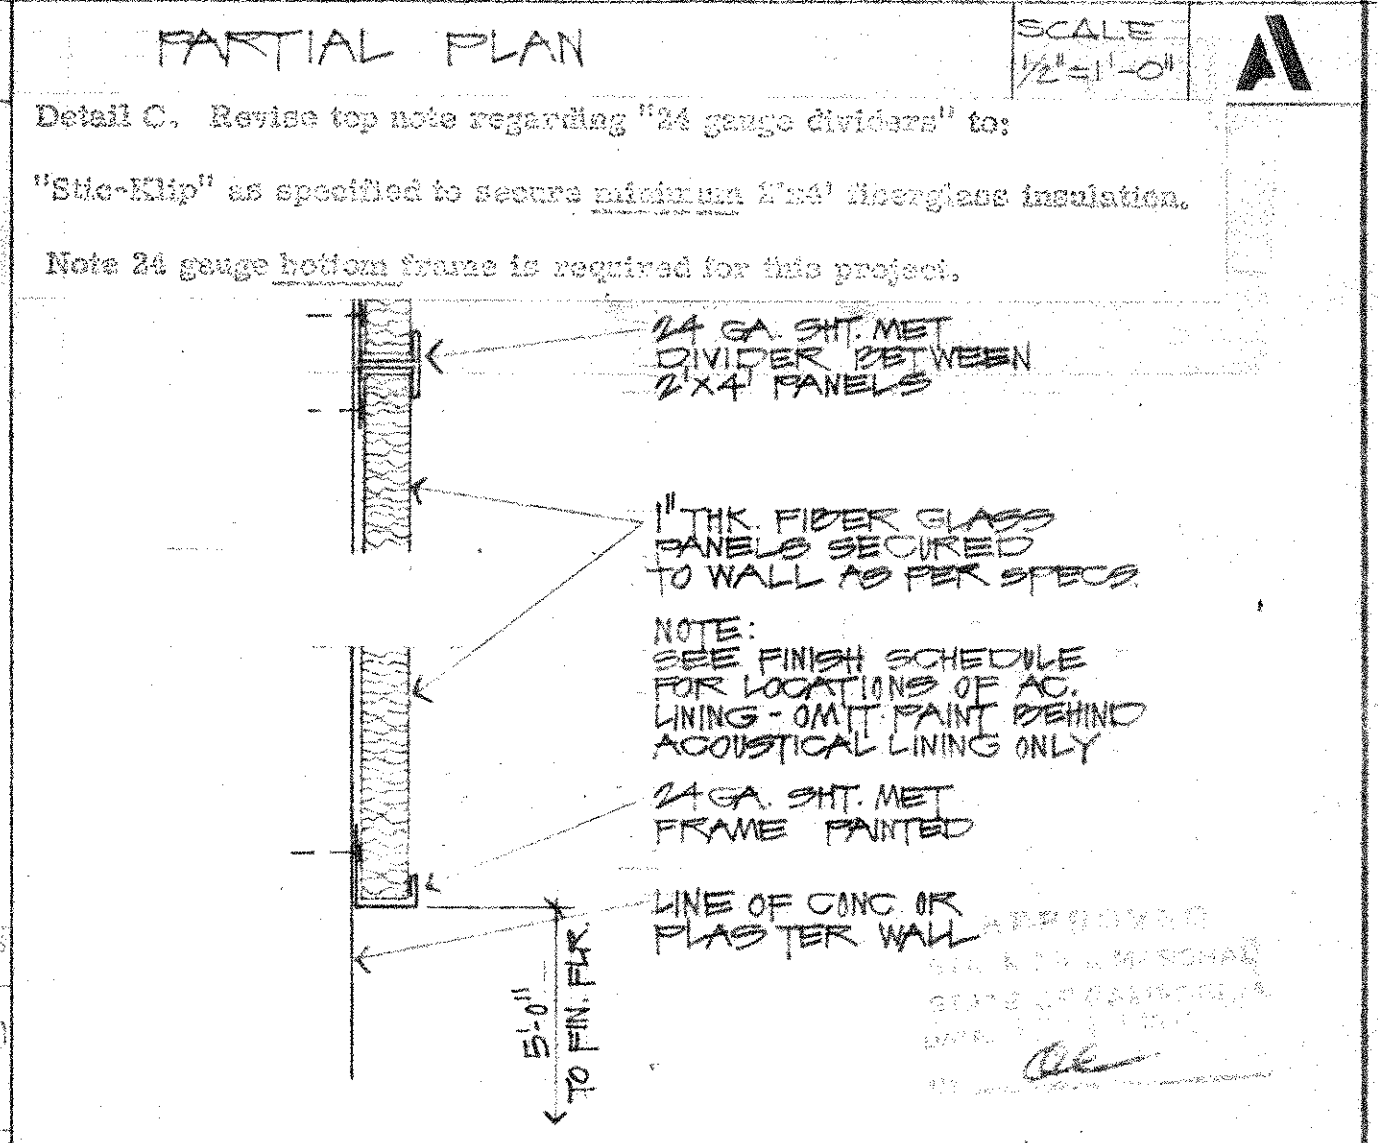 PARTIAL PLAN
SCALE
1/2"=1'-0"
Detail C. Revise top note regarding "24 gauge dividers" to:
"Stic-Klip" as specified to secure minimum 2'x4' fiberglass insulation.
Note 24 gauge bottom frame is required for this project.
24 GA. SHT. MET
DIVIDER BETWEEN
2'X4' PANELS
1" THK. FIBER GLASS
PANELS SECURED
TO WALL AS PER SPECS.
NOTE:
SEE FINISH SCHEDULE
FOR LOCATIONS OF AC.
LINING - OMIT PAINT BEHIND
ACOUSTICAL LINING ONLY
24 GA. SHT. MET
FRAME PAINTED
LINE OF CONC OR
PLASTER WALL
5'-0"
TO FIN. FLR.